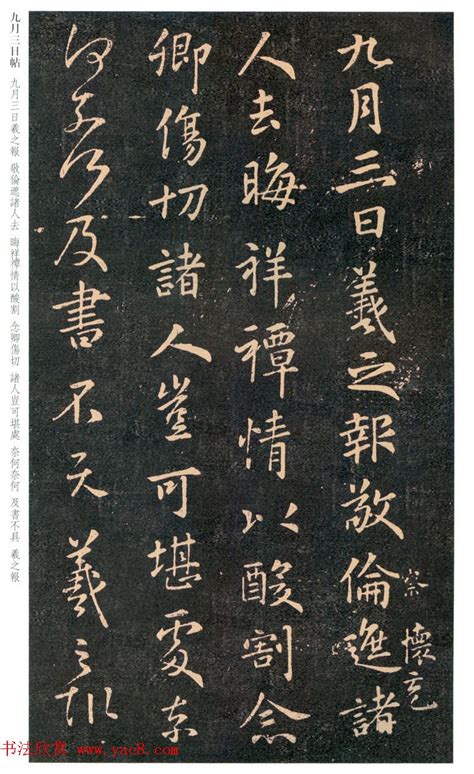 九月三日羲之報敬倫遮諸
察懷充
人去晦祥禫情以酸割念
卿傷切諸人豈可堪處奈
何奈何及書不具羲之報
九月三日帖 九月三日羲之報 敬倫遮諸人去 晦祥禫情以酸割 念卿傷切 諸人豈可堪處 奈何奈何 及書不具 羲之報
书法欣赏 www.yac8.com